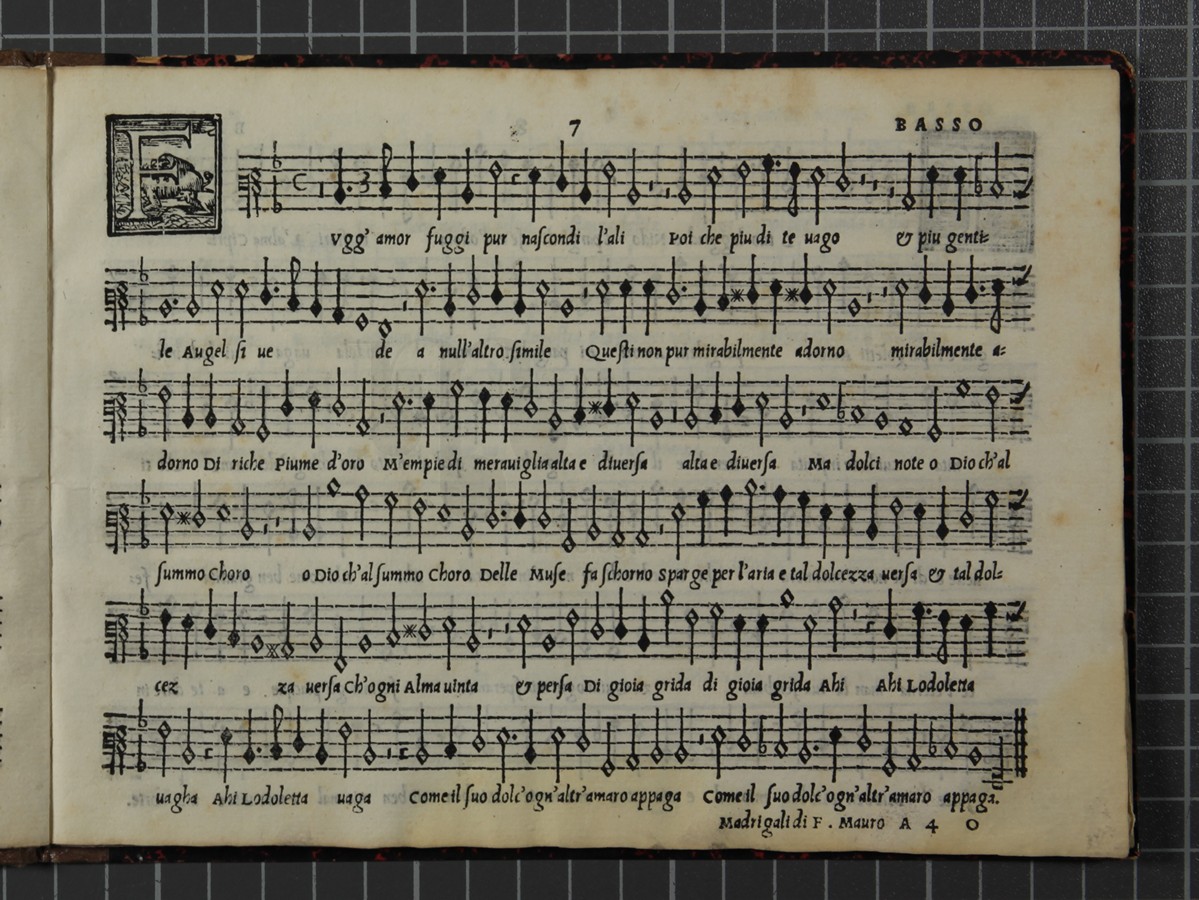 7
BASSO
F Vgg' amor fuggi pur nascondi l'ali Poi che piu di te uago & piu genti=
le Augel si ue de a null'altro simile Questi non pur mirabilmente adorno mirabilmente a=
dorno Di riche Piume d'oro M'empie di merauiglia alta e diuersa alta e diuersa Ma dolci note o Dio ch'al
summo Choro o Dio ch'al summo Choro Delle Muse fa schorno Sparge per l'aria e tal dolcezza uersa & tal dol=
cez za uersa Ch'ogni Alma uinta & persa Di gioia grida di gioia grida Ahi Ahi Lodoletta
uagha Ahi Lodoletta uaga Come il suo dolc'ogn'altr'amaro appaga Come il suo dolc'ogn'altr'amaro appaga.
Madrigali di F. Mauro A 4 O